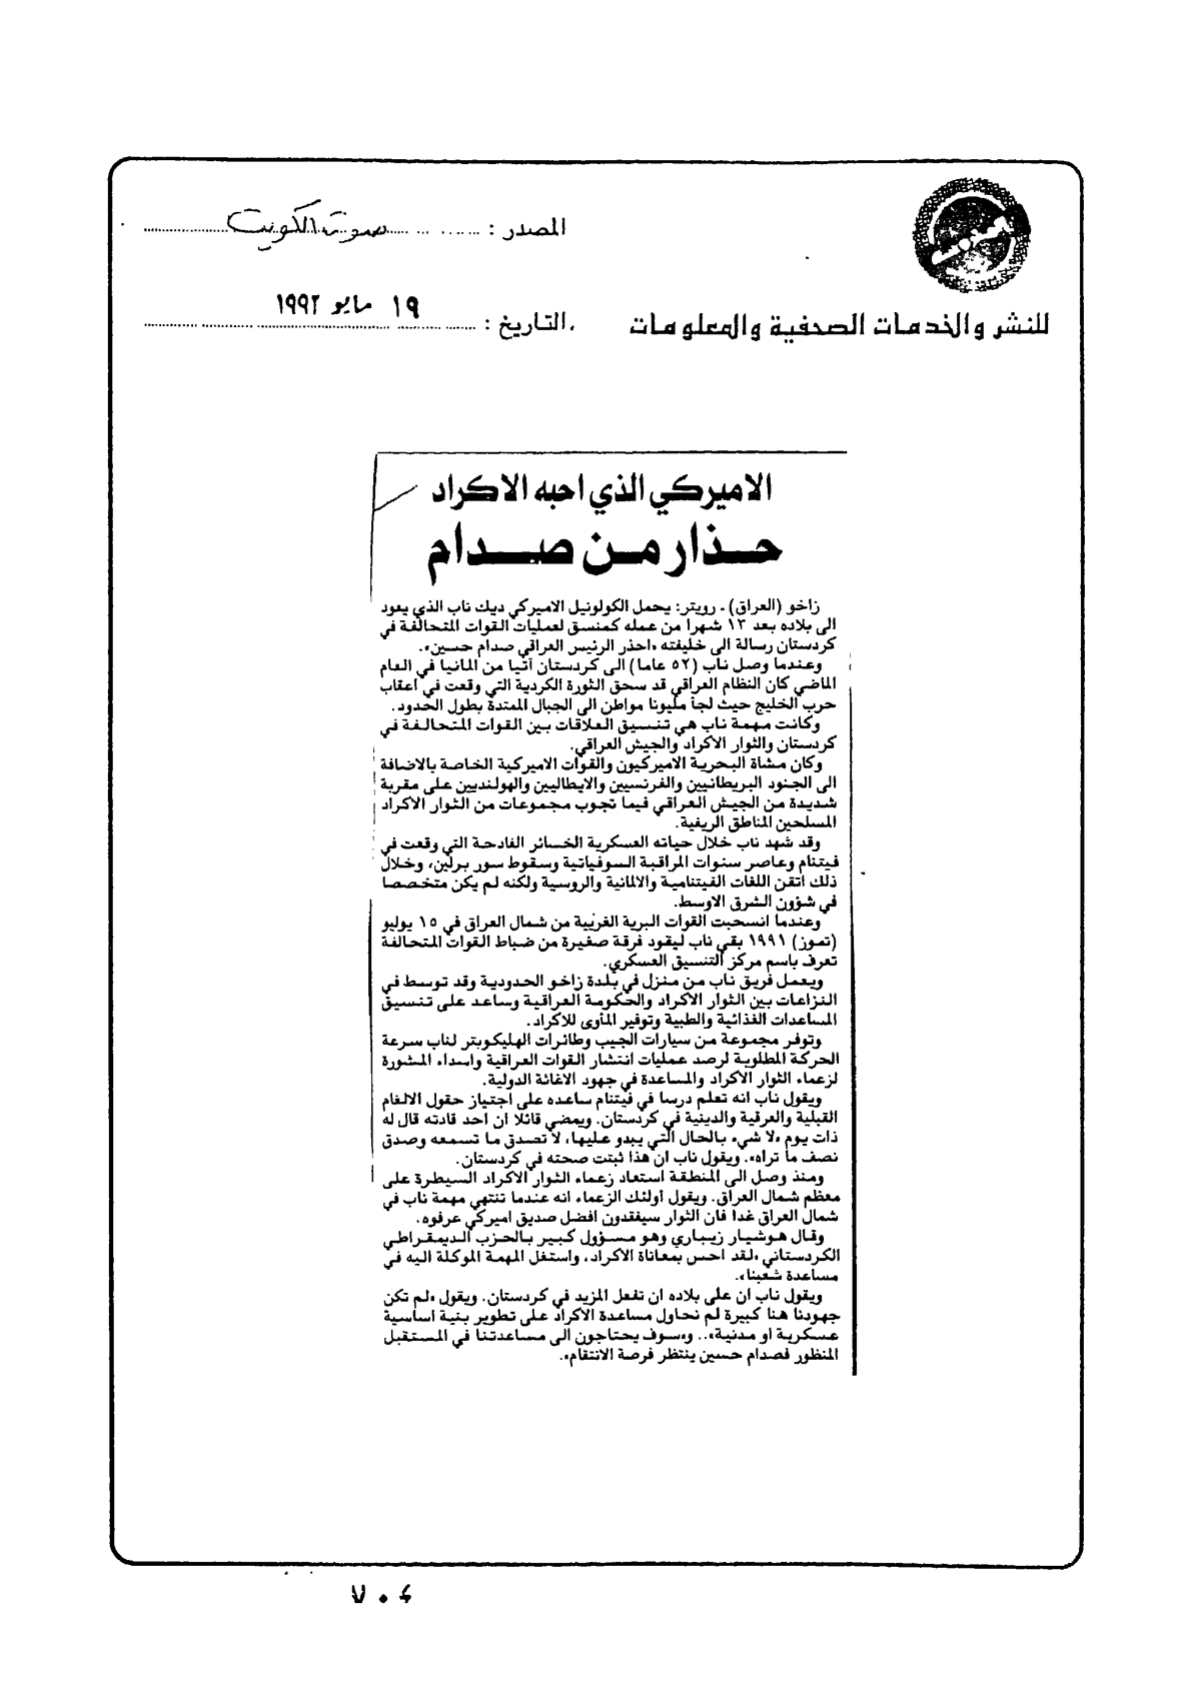 المصدر : صوت الكويت
التاريخ : ١٩ مايو ١٩٩٢
للنشر والخدمات الصحفية والمعلومات
الاميركي الذي احبه الاكراد
حذار من صدام
زاخو (العراق) ـ رويتر: يحمل الكولونيل الاميركي ديك ناب الذي يعود
الى بلاده بعد ١٣ شهرا من عمله كمنسق لعمليات القوات المتحالفة في
كردستان رسالة الى خليفته «احذر الرئيس العراقي صدام حسين».
وعندما وصل ناب (٥٢ عاما) الى كردستان آتيا من المانيا في العام
الماضي كان النظام العراقي قد سحق الثورة الكردية التي وقعت في اعقاب
حرب الخليج حيث لجأ مليونا مواطن الى الجبال الممتدة بطول الحدود.
وكانت مهمة ناب هي تنسيق العلاقات بين القوات المتحالفة في
كردستان والثوار الاكراد والجيش العراقي.
وكان مشاة البحرية الاميركيون والقوات الاميركية الخاصة بالاضافة
الى الجنود البريطانيين والفرنسيين والايطاليين والهولنديين على مقربة
شديدة من الجيش العراقي فيما تجوب مجموعات من الثوار الاكراد
المسلحين المناطق الريفية.
وقد شهد ناب خلال حياته العسكرية الخسائر الفادحة التي وقعت في
فيتنام وعاصر سنوات المراقبة السوفياتية وسقوط سور برلين، وخلال
ذلك اتقن اللغات الفيتنامية والالمانية والروسية ولكنه لم يكن متخصصا
في شؤون الشرق الاوسط.
وعندما انسحبت القوات البرية الغربية من شمال العراق في ١٥ يوليو
(تموز) ١٩٩١ بقي ناب ليقود فرقة صغيرة من ضباط القوات المتحالفة
تعرف باسم مركز التنسيق العسكري.
ويعمل فريق ناب من منزل في بلدة زاخو الحدودية وقد توسط في
النزاعات بين الثوار الاكراد والحكومة العراقية وساعد على تنسيق
المساعدات الغذائية والطبية وتوفير المأوى للاكراد.
وتوفر مجموعة من سيارات الجيب وطائرات الهليكوبتر لناب سرعة
الحركة المطلوبة لرصد عمليات انتشار القوات العراقية واسداء المشورة
لزعماء الثوار الاكراد والمساعدة في جهود الاغاثة الدولية.
ويقول ناب انه تعلم درسا في فيتنام ساعده على اجتياز حقول الالغام
القبلية والعرقية والدينية في كردستان. ويمضي قائلا ان احد قادته قال له
ذات يوم «لا شيء بالحال التي يبدو عليها، لا تصدق ما تسمعه وصدق
نصف ما تراه». ويقول ناب ان هذا ثبتت صحته في كردستان.
ومنذ وصل الى المنطقة استعاد زعماء الثوار الاكراد السيطرة على
معظم شمال العراق. ويقول أولئك الزعماء انه عندما تنتهي مهمة ناب في
شمال العراق غدا فان الثوار سيفقدون افضل صديق اميركي عرفوه.
وقال هوشيار زيباري وهو مسؤول كبير بالحزب الديمقراطي
الكردستاني «لقد احس بمعاناة الاكراد، واستغل المهمة الموكلة اليه في
مساعدة شعبنا».
ويقول ناب ان على بلاده ان تفعل المزيد في كردستان. ويقول «لم تكن
جهودنا هنا كبيرة لم نحاول مساعدة الاكراد على تطوير بنية اساسية
عسكرية او مدنية».. «وسوف يحتاجون الى مساعدتنا في المستقبل
المنظور فصدام حسين ينتظر فرصة الانتقام».
٧٠٤